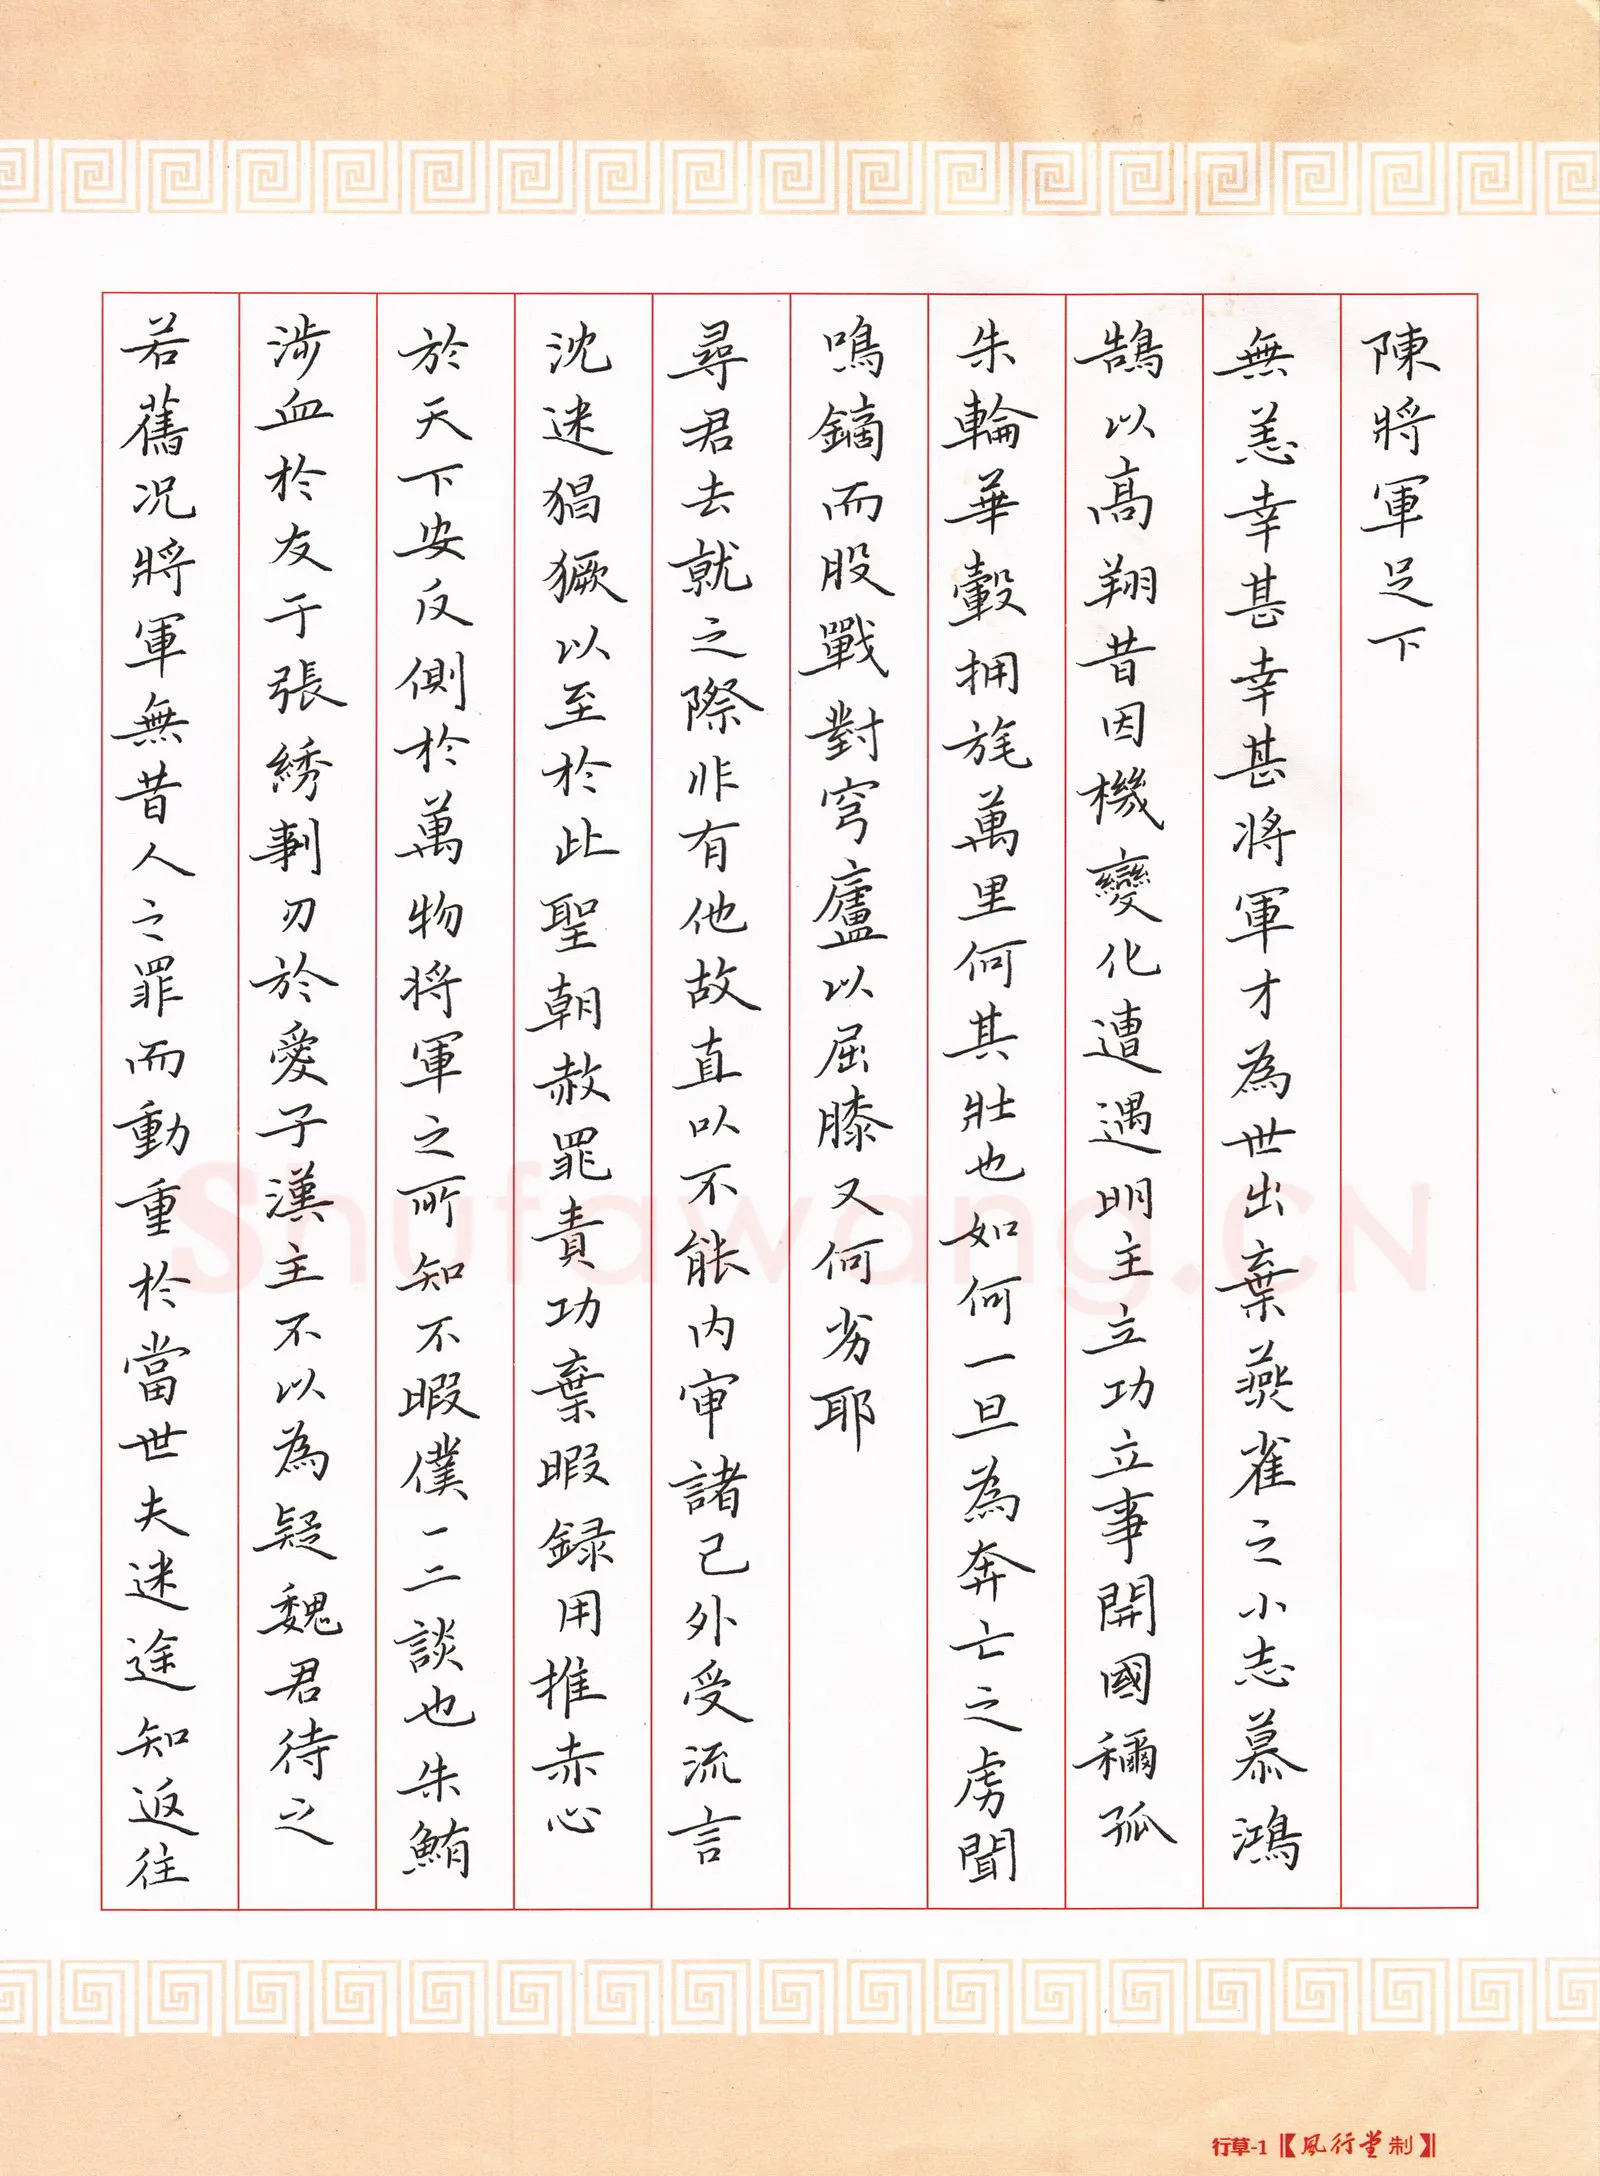 陳將軍足下
無恙幸甚幸甚將軍才為世出棄燕雀之小志慕鴻
鵠以高翔昔因機變化遭遇明主立功立事開國稱孤
朱輪華轂拥旄萬里何其壯也如何一旦為奔亡之虜聞
鳴鏑而股戰對穹廬以屈膝又何劣耶
尋君去就之際非有他故直以不能内审諸己外受流言
沈迷猖獗以至於此聖朝赦罪責功棄暇録用推赤心
於天下安反側於萬物將軍之所知不暇僕一二談也朱鮪
涉血於友于張綉剚刃於愛子漢主不以為疑魏君待之
若舊况將軍無昔人之罪而動重於當世夫迷途知返往
Shufawang.CN
行草-1【風行堂制】